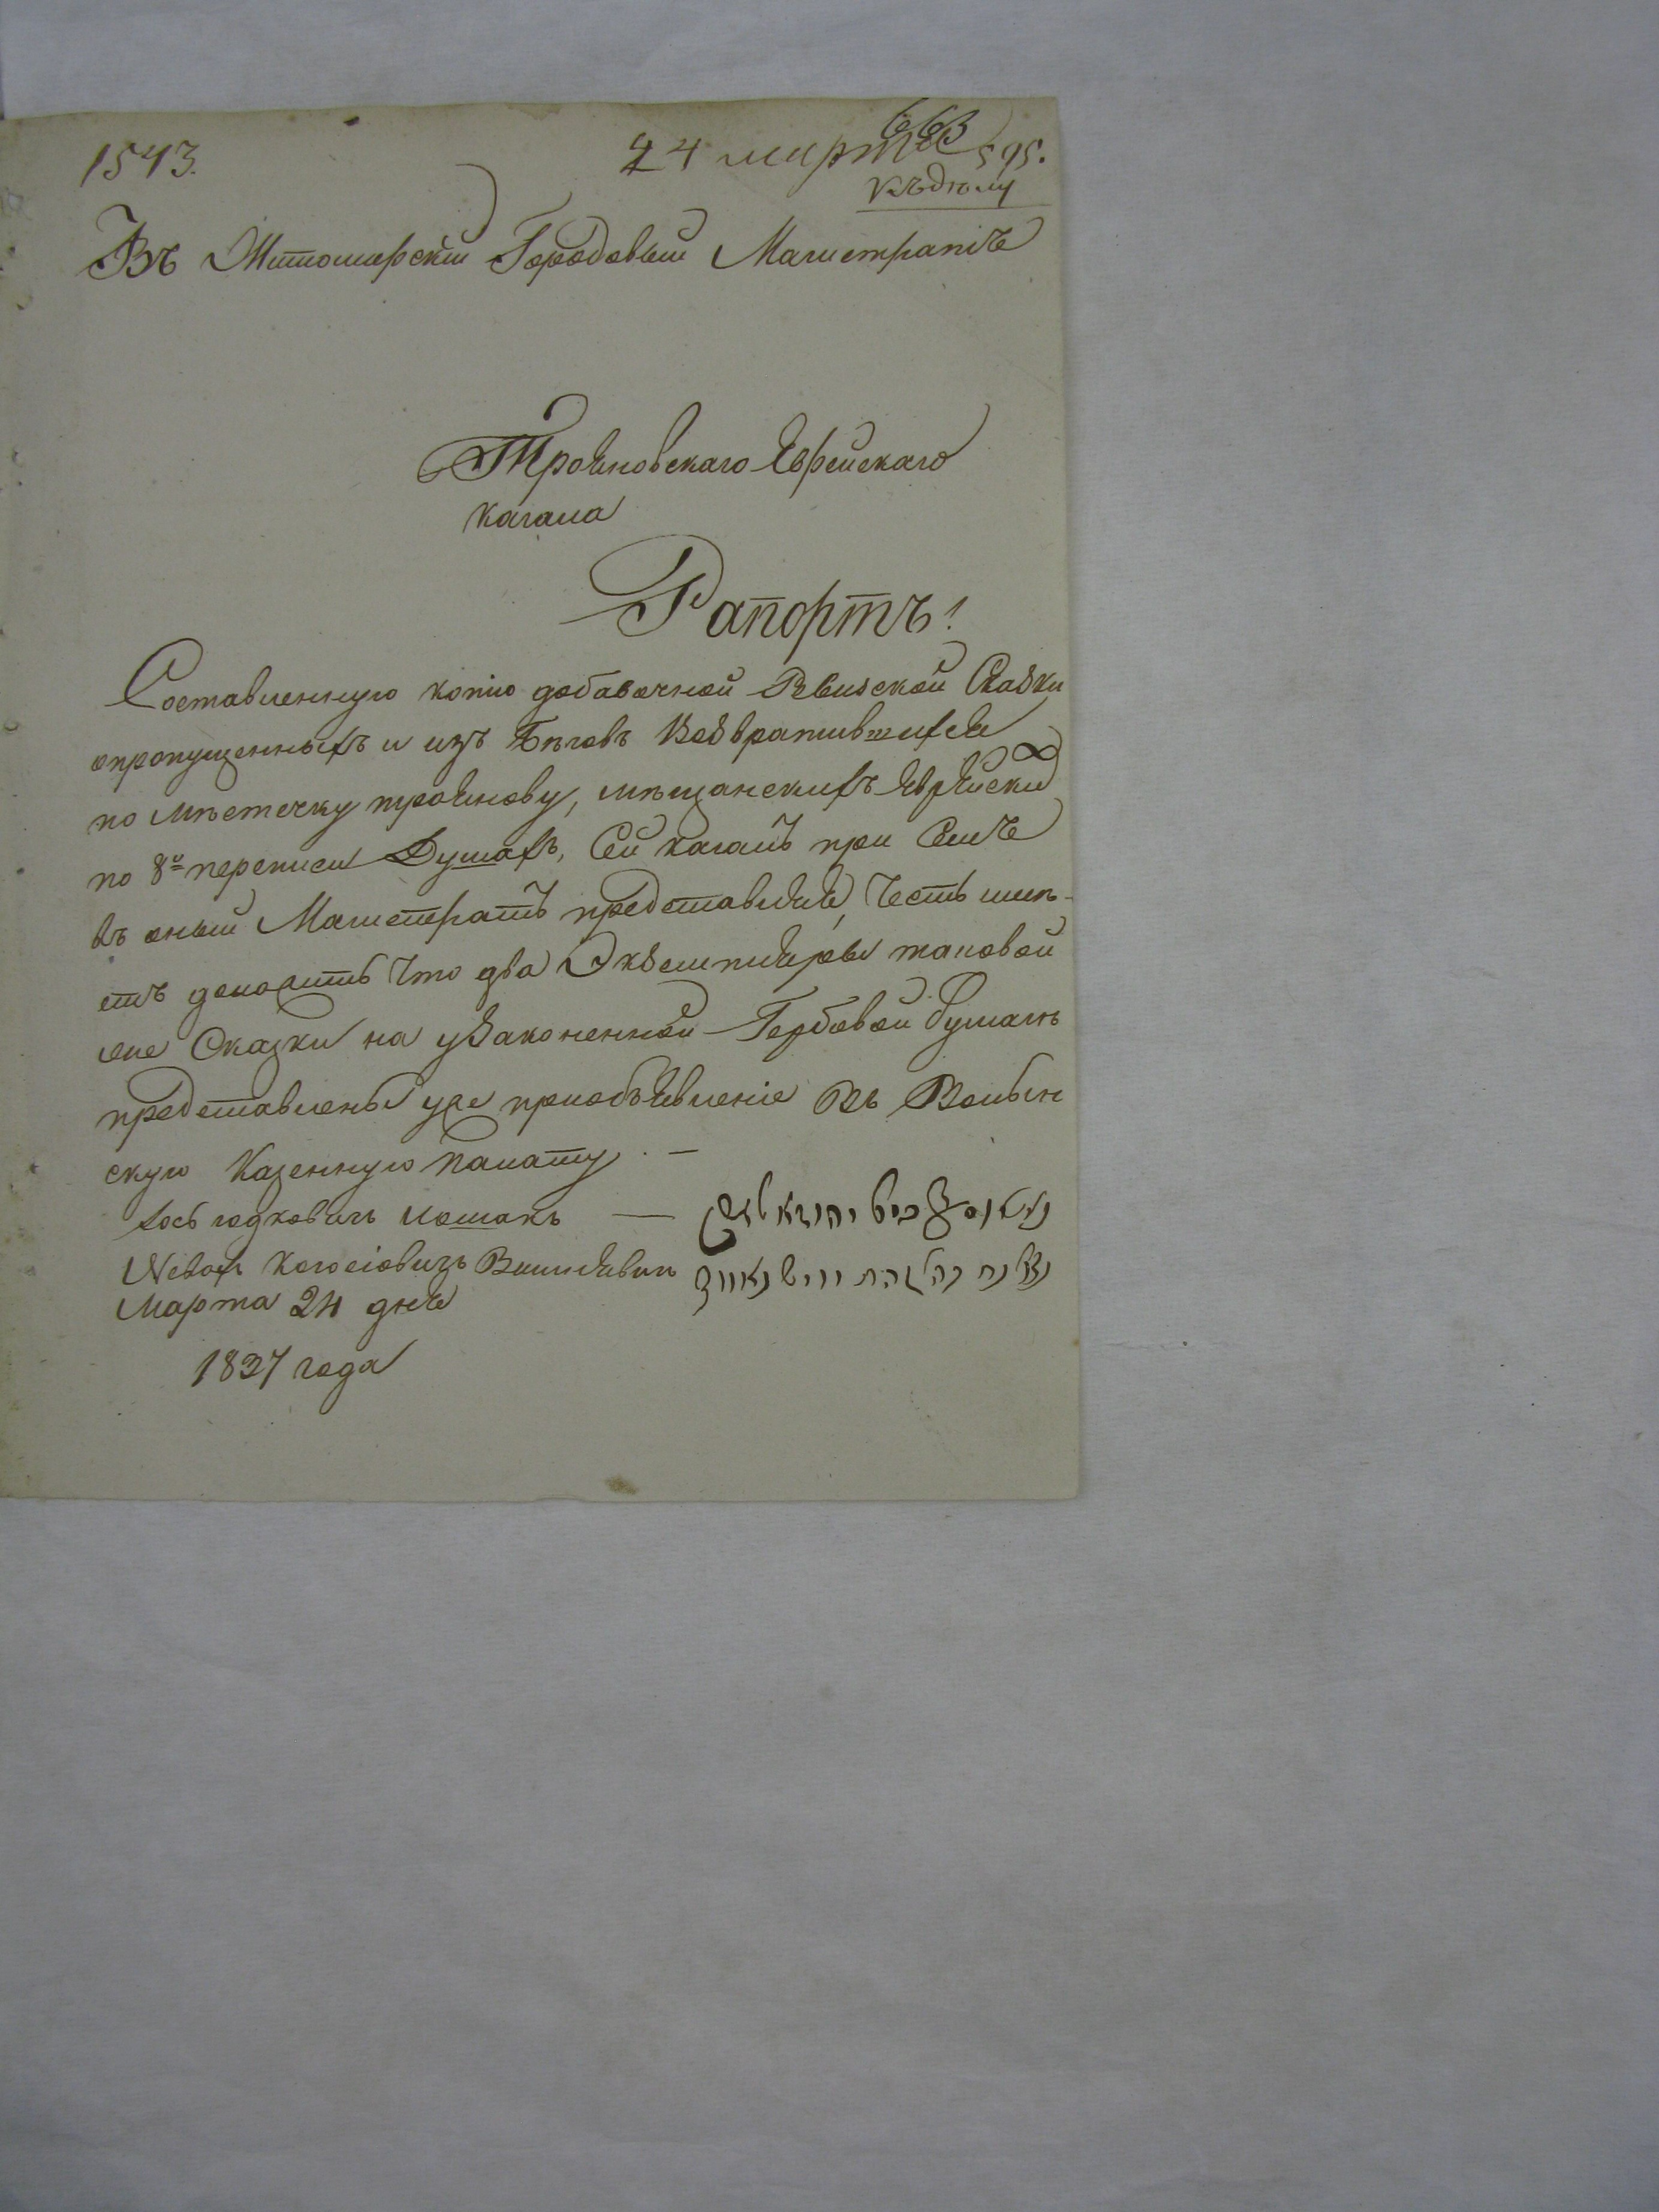 1543.
24 марта 663 595.
къ дѣлу
Въ Житомирскій Городовый Магистратъ
Трояновскаго Еврейскаго
Кагала
Рапортъ!
Составленную копію добавочной Ревизской Сказки
опропущенныхъ и изъ Бѣговъ Возвратившихся
по мѣстечку троянову, мѣщанскихъ Еврейски
по 8й переписи Душахъ, Сей кагалъ при Семъ
въ оный Магистратъ представляя, Честь имѣ-
етъ доносить что два Экземпляры таковой
же Сказки на узаконенной Гербовой бумагѣ
представлены уже приобъявленіе Въ Волын
скую Казенную палату. —
Марта 24 дня
1837 года